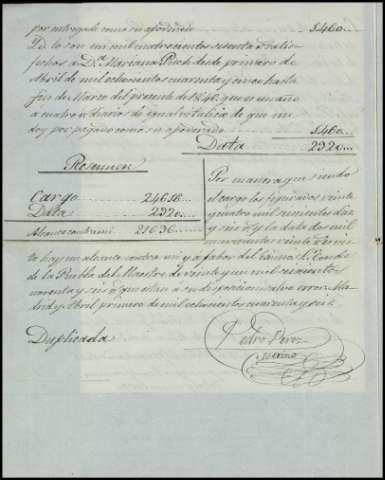 por entregado como su apoderado 1,460...
Id. lo son un mil cuatrocientos sesenta r.s satis-
fechos a D.ª Mariana Puch desde primero de
Abril de mil ochocientos cuarenta y cinco hasta
fin de Marzo del presente de 1846, que es un año
a cuatro r.s diarios de igual
doy por pagado como su apoderado 1,460...
Data 2920...
Resumen
Cargo 24616...
Data 2920...
Alcance contra mi 21696...
Por manera que siendo
el cargo los figurados veinte
y cuatro mil seiscientos diez
y seis r.s y la data dos mil
novecientos veinte r.s
ta hay un alcance contra mi y a fabor del Excmo. S. Conde
de la Puebla del Maestre de veinte y un mil seiscientos
noventa y seis r.s que estan a su disposicion salvo error. Ma-
drid y Abril primero de mil ochocientos cuarenta y seis.
Duplicada
Pedro Perez
Merino